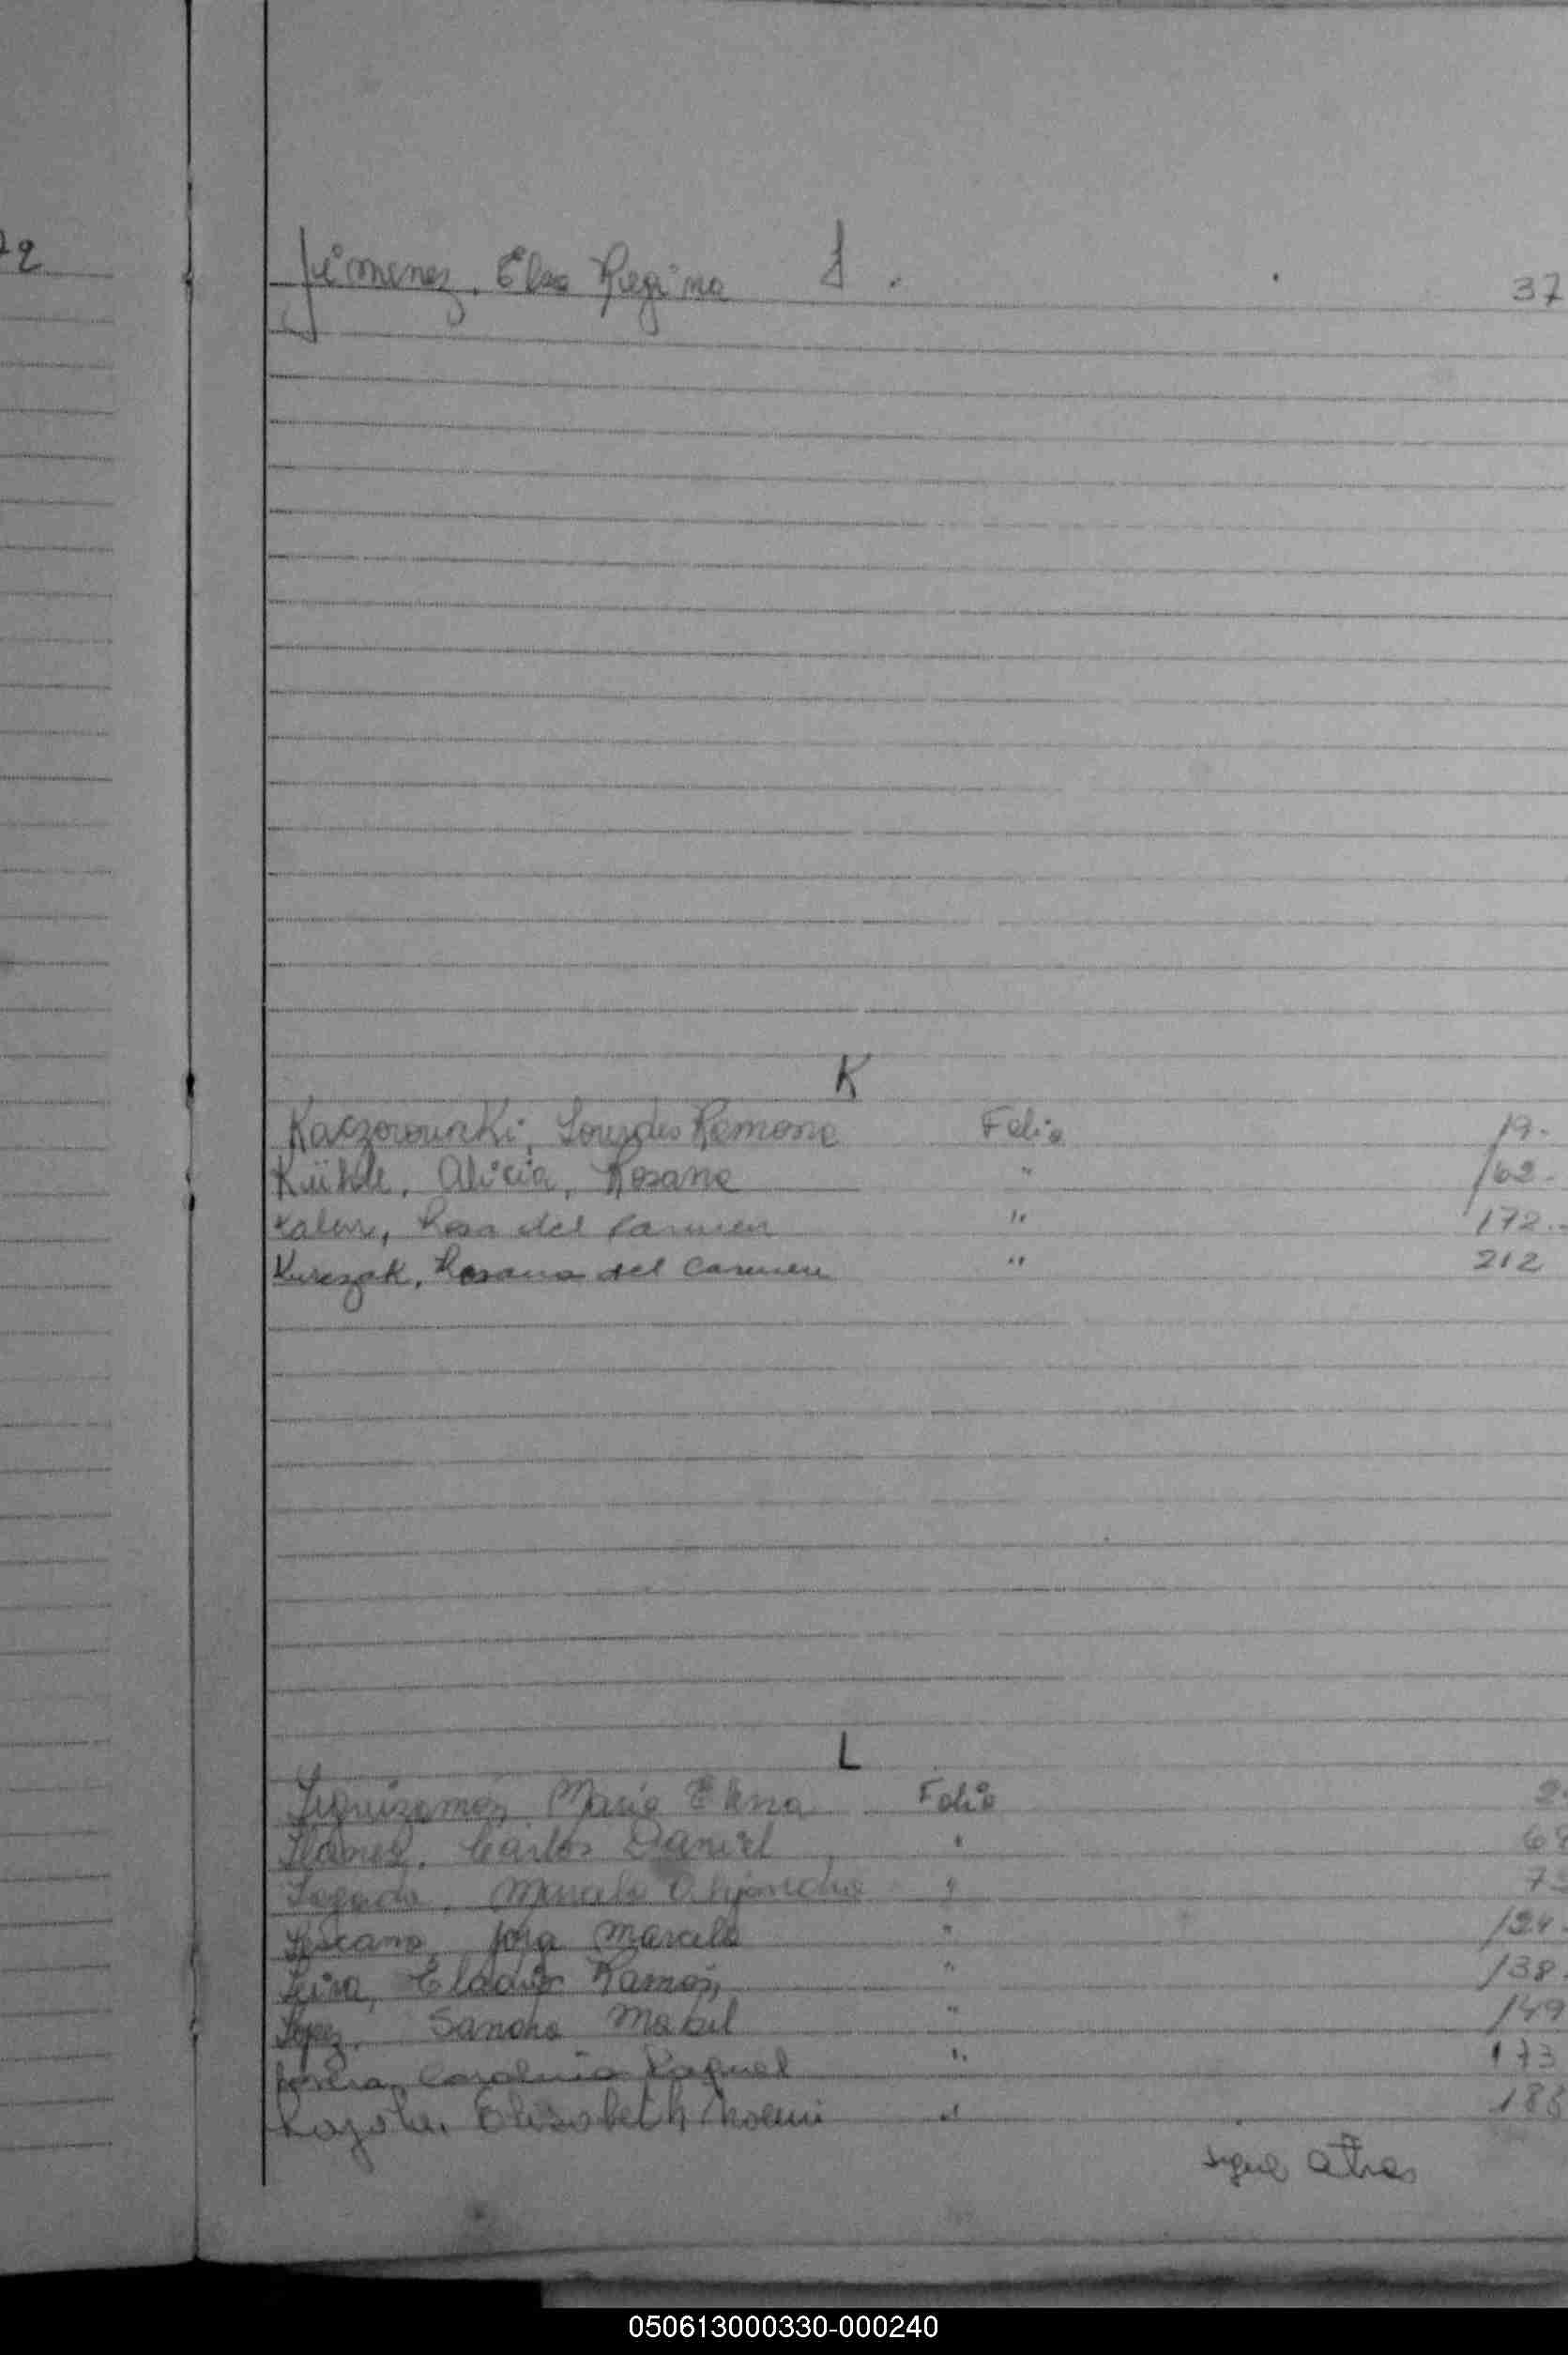 72
J.
Jimenez, Elsa Regina 37
K
Kaczorowski, Lourdes Ramona Folio 19.
Kühle, Alicia, Rosana " 162.
Rosa del Carmen " 172.
Kurczak, Rosana del Carmen " 212
L
Leguizamón, Maria Elena Folio 2
Llanes, Carlos Daniel " 68
Marcelo Alejandro " 7
Lescano, Jorge Marcelo " 124.
Leiva, Eladio Ramón, " 138.
Lopez, Sandra Mabel " 149
Carolina Raquel " 173
Elizabeth Noemi " 18
sigue atras
050613000330-000240